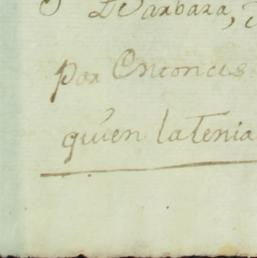 Barbara,
por Entonces
quien laTenia